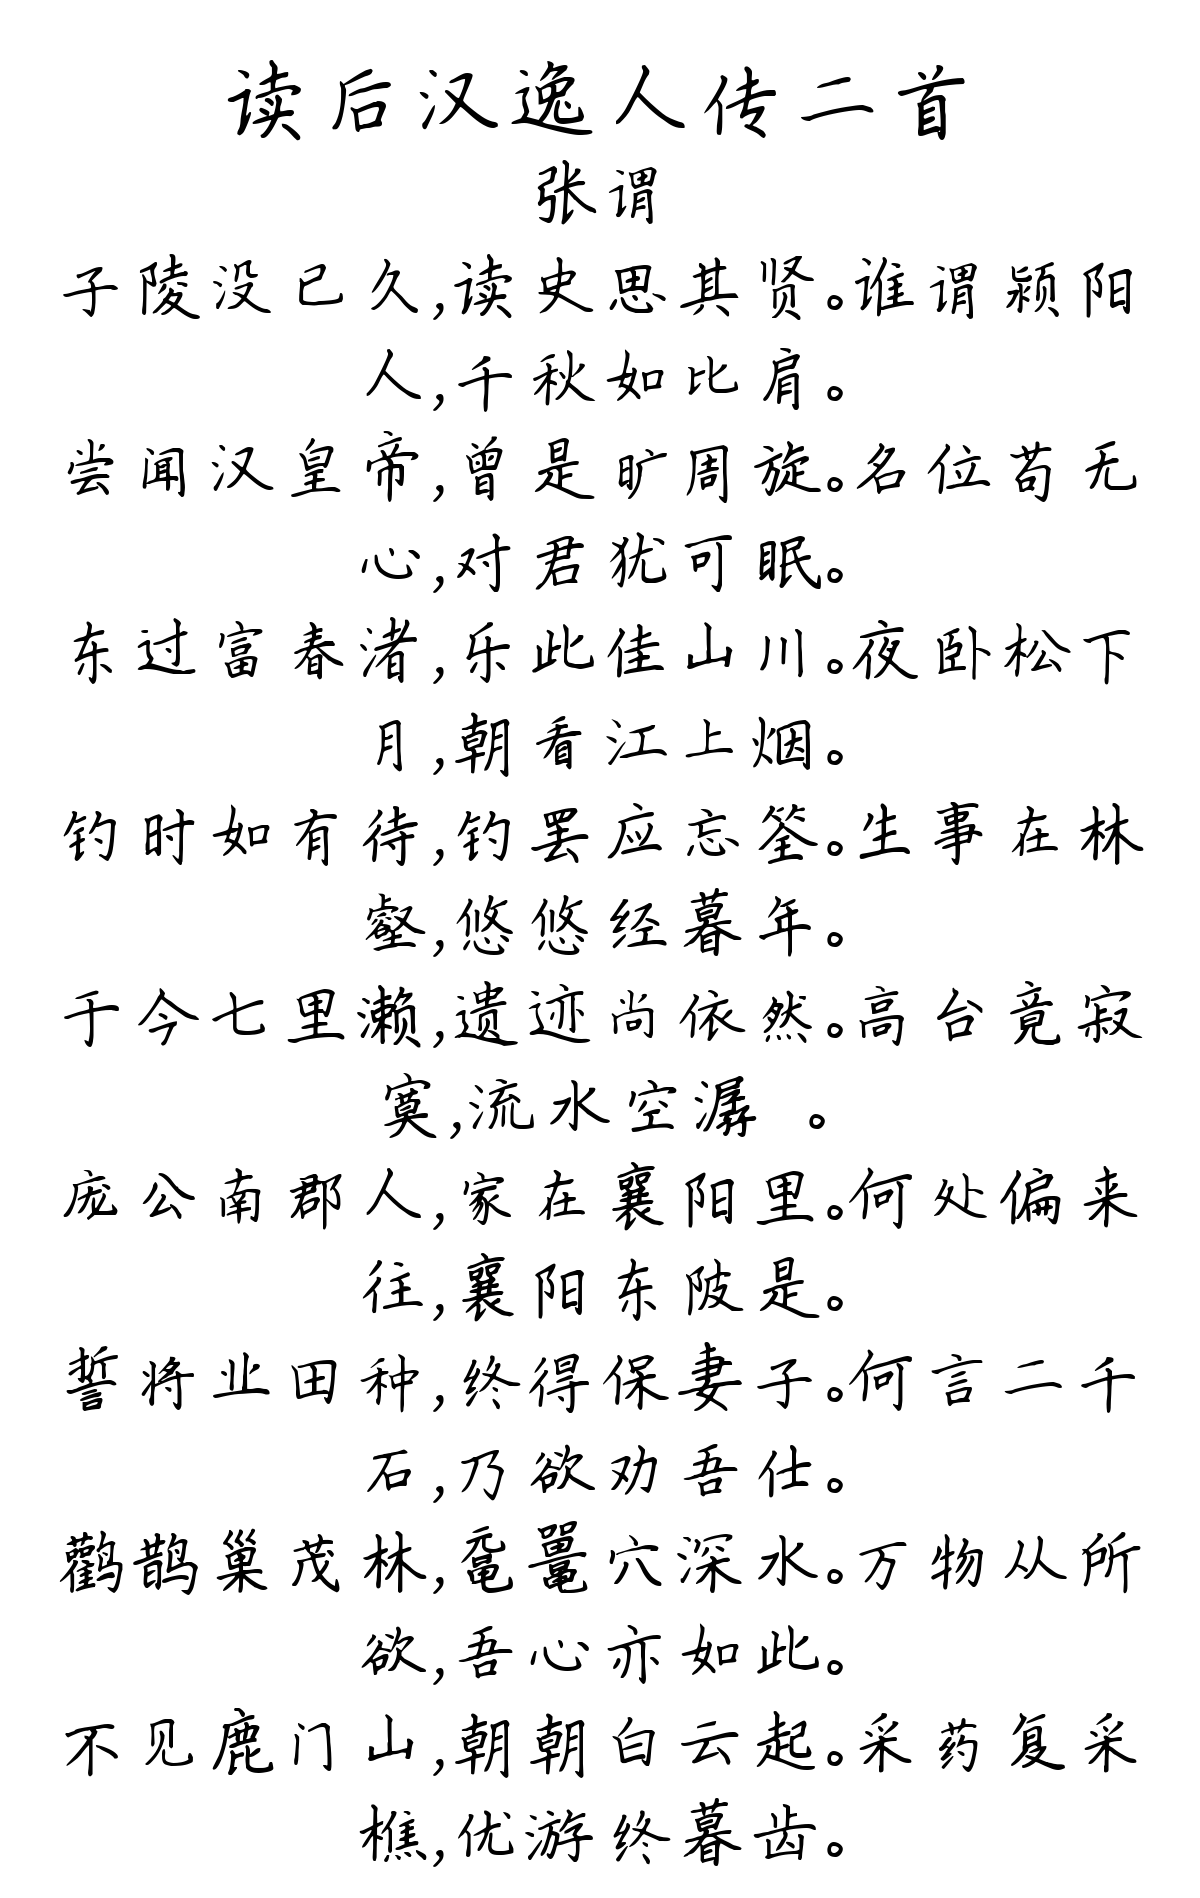 读后汉逸人传二首
张谓
子陵没已久,读史思其贤。谁谓颍阳
人,千秋如比肩。
尝闻汉皇帝,曾是旷周旋。名位苟无
心,对君犹可眠。
东过富春渚,乐此佳山川。夜卧松下
月,朝看江上烟。
钓时如有待,钓罢应忘筌。生事在林
壑,悠悠经暮年。
于今七里濑,遗迹尚依然。高台竟寂
寞,流水空潺 。
庞公南郡人,家在襄阳里。何处偏来
往,襄阳东陂是。
誓将业田种,终得保妻子。何言二千
石,乃欲劝吾仕。
鹳鹊巢茂林,鼋鼍穴深水。万物从所
欲,吾心亦如此。
不见鹿门山,朝朝白云起。采药复采
樵,优游终暮齿。